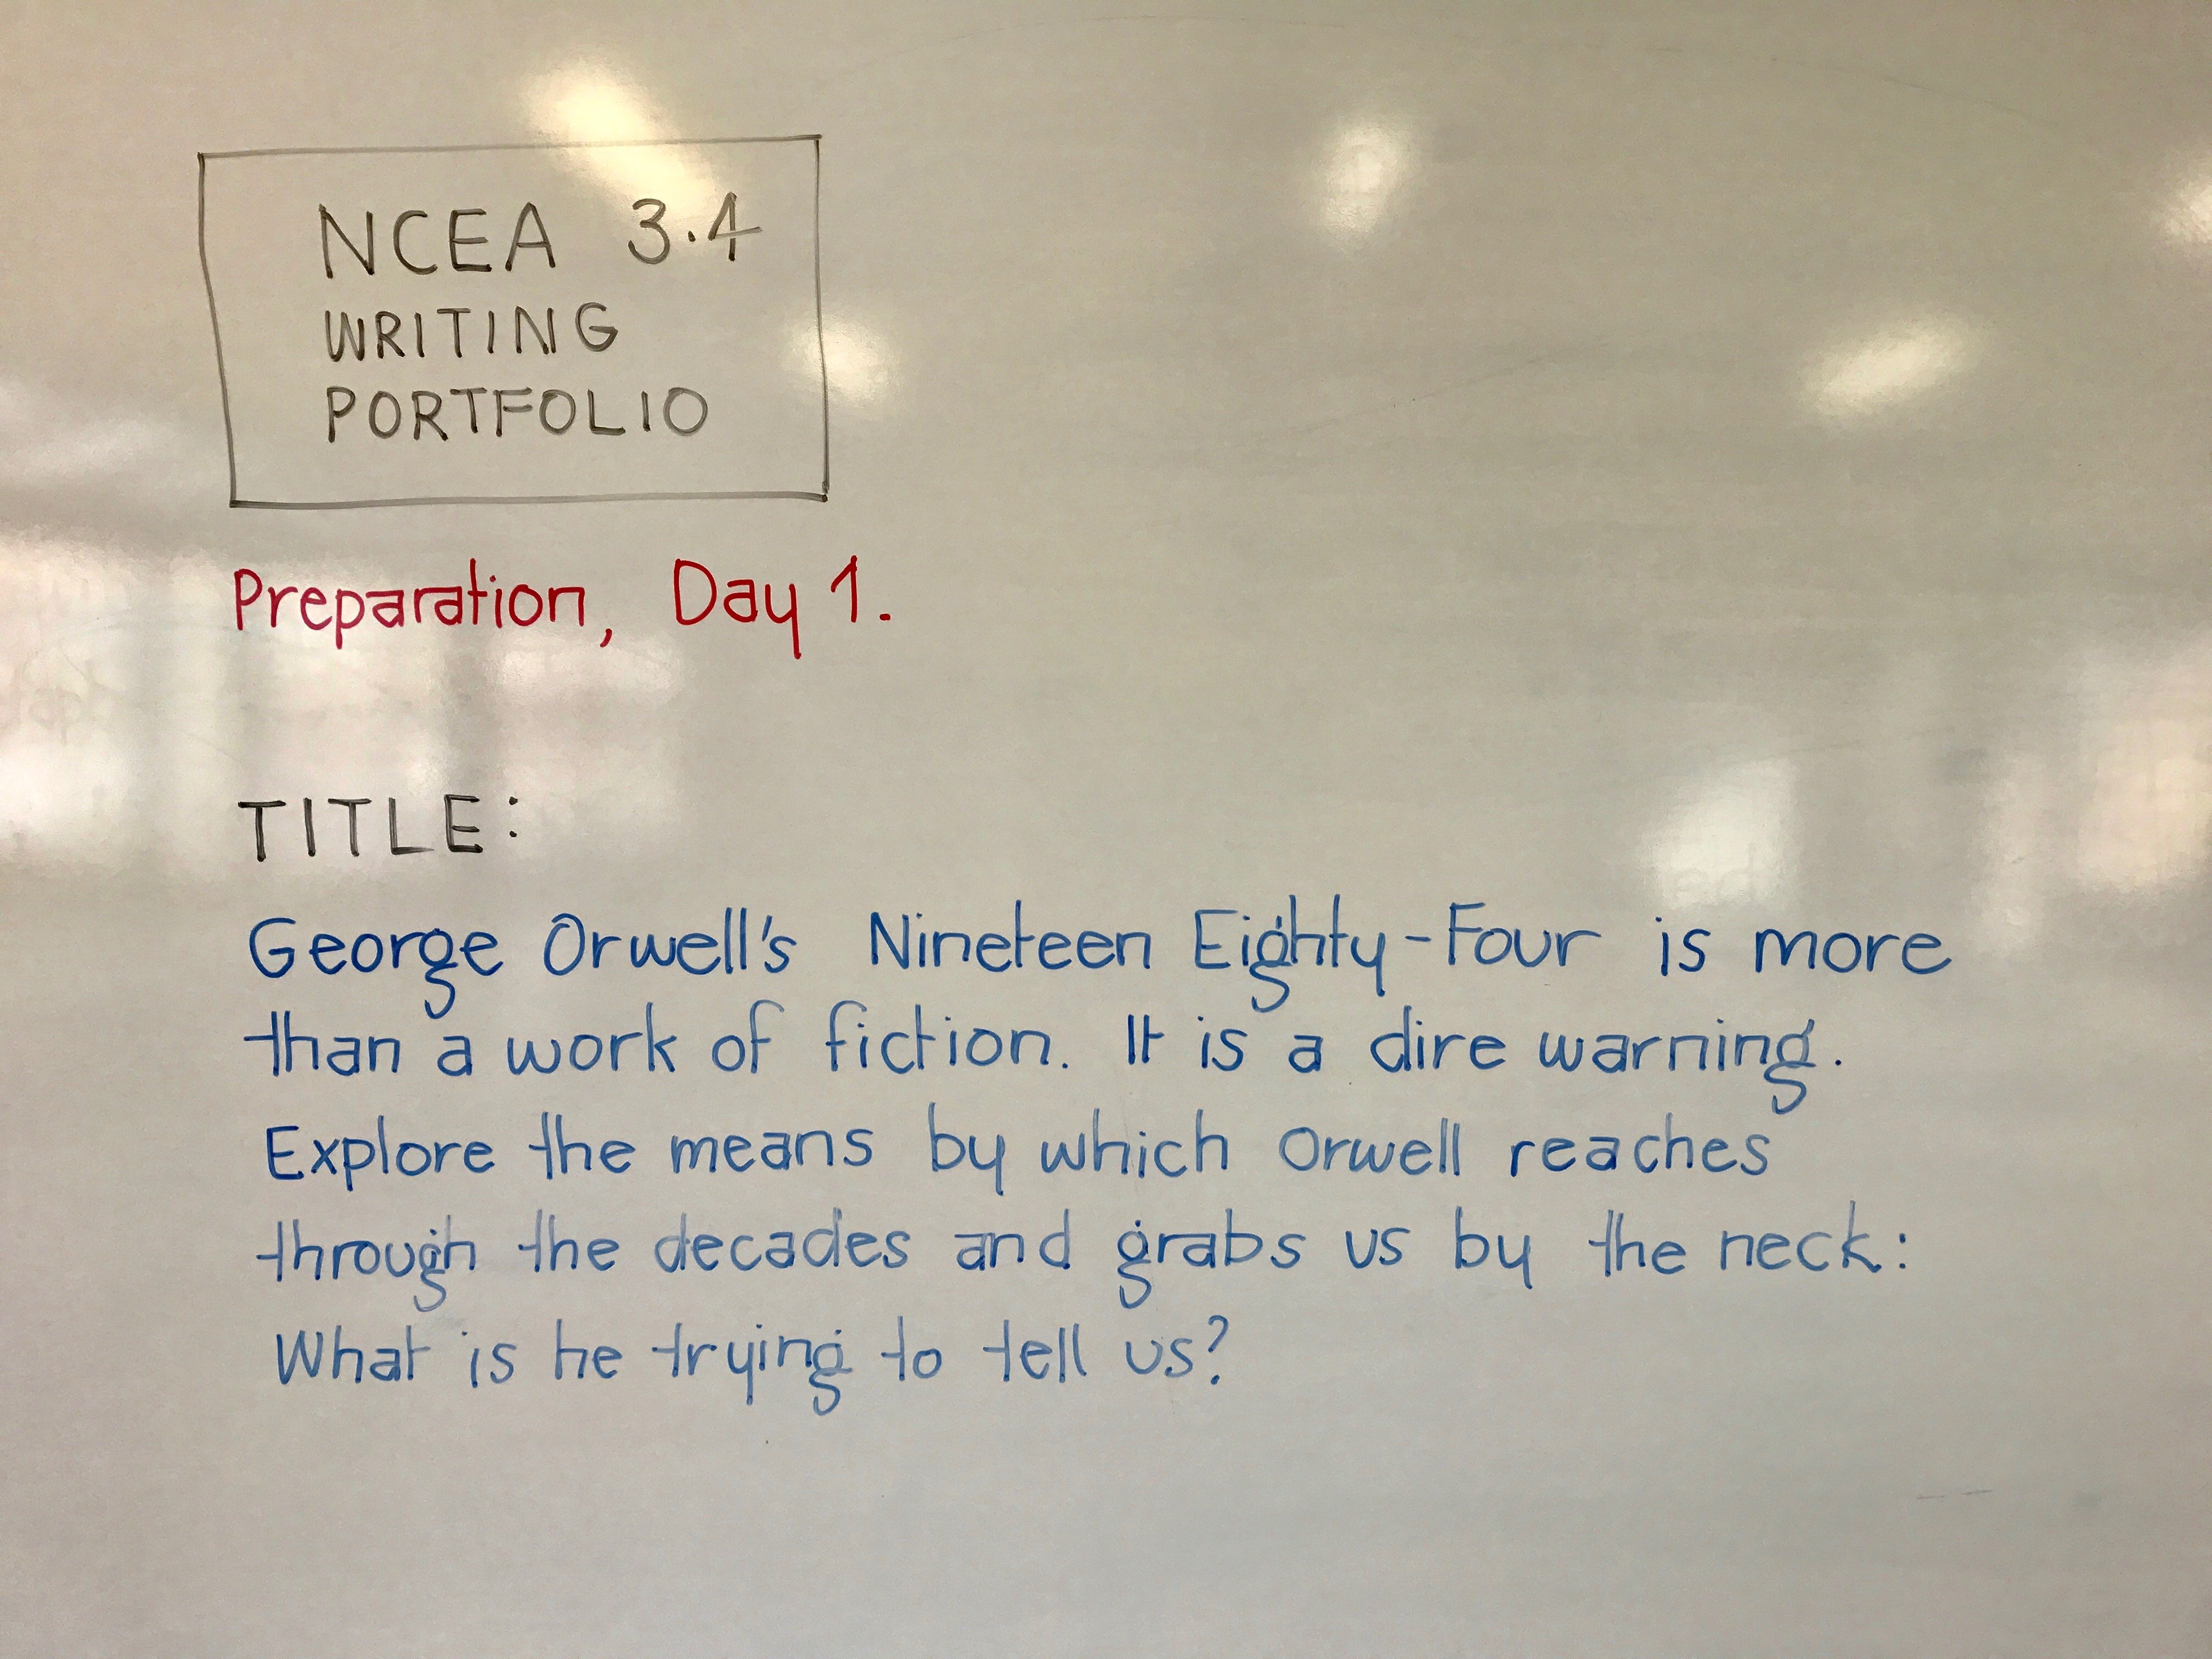 NCEA 3.4
WRITING
PORTFOLIO
Preparation, Day 1.
TITLE:
George Orwell's Nineteen Eighty-Four is more
than a work of fiction. It is a dire warning.
Explore the means by which Orwell reaches
through the decades and grabs us by the neck:
What is he trying to tell us?